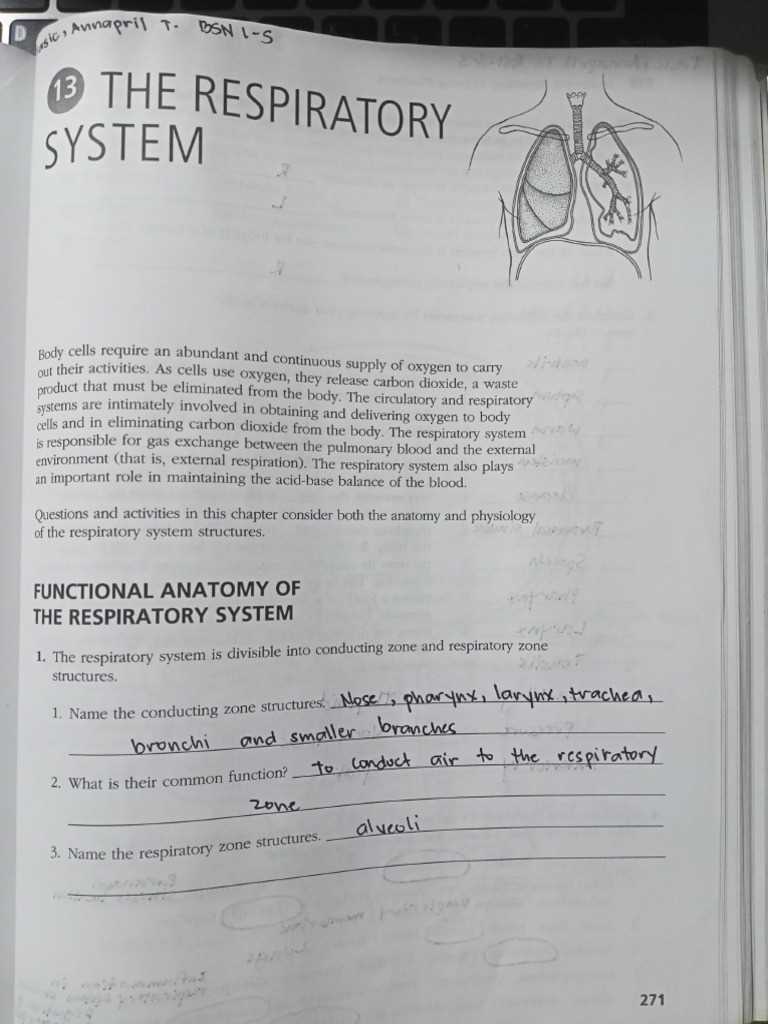 D
Annapril T. BSN 1-S
13 THE RESPIRATORY
SYSTEM
Body cells require an abundant and continuous supply of oxygen to carry
out their activities. As cells use oxygen, they release carbon dioxide, a waste
product that must be eliminated from the body. The circulatory and respiratory
systems are intimately involved in obtaining and delivering oxygen to body
cells and in eliminating carbon dioxide from the body. The respiratory system
is responsible for gas exchange between the pulmonary blood and the external
environment (that is, external respiration). The respiratory system also plays
an important role in maintaining the acid-base balance of the blood.
Questions and activities in this chapter consider both the anatomy and physiology
of the respiratory system structures.
FUNCTIONAL ANATOMY OF
THE RESPIRATORY SYSTEM
1. The respiratory system is divisible into conducting zone and respiratory zone
structures.
1. Name the conducting zone structures. Nose, pharynx, larynx, trachea,
bronchi and smaller branches
2. What is their common function? to conduct air to the respiratory
zone
3. Name the respiratory zone structures. alveoli
271